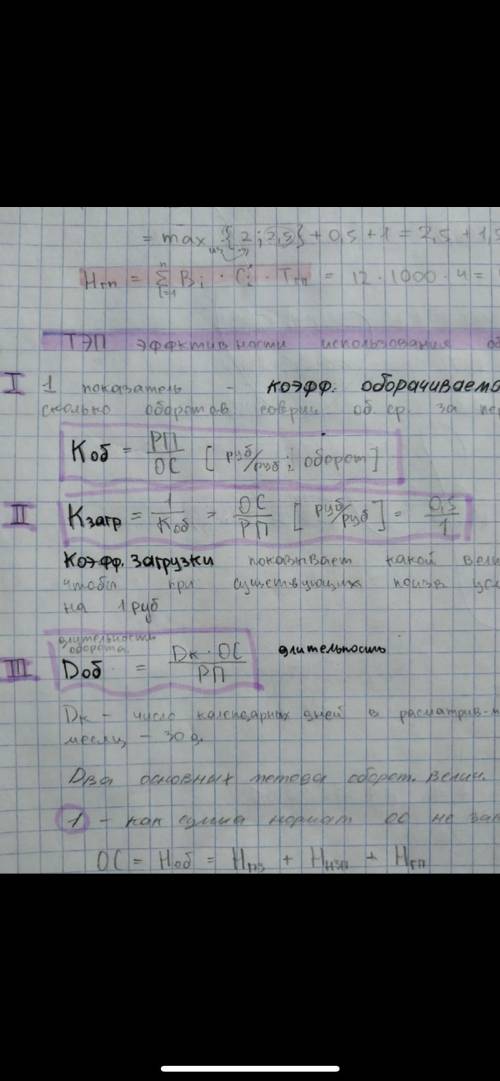 = max {2; 2,5} + 0,5 + 1 = 2,5 + 1,5
Нгп = Σ Bi · Ci' · Тгп = 12 · 1000 · 4 =
n
i=1
ТЭП эффективности использования об
I 1 показатель - коэфф. оборачиваемо
сколько оборотов соверш об. ср. за пер
Kоб = РП/ОС [руб/руб; оборот]
II Kзагр = 1/Kоб = ОС/РП [руб/руб] = 0,5/1
Коэфф. загрузки показывает какой вели
чтобы при существующих усл
на 1 руб
длительность оборота
III Dоб = Dк · ОС/РП длительность
Dк - число календарных дней в рассматрив-м
месяц - 30 д.
Два основных метода оборот. велич.
1 - как сумма нормат ОС не зав
ОС = Ноб = Нпз + Ннзп + Нгп